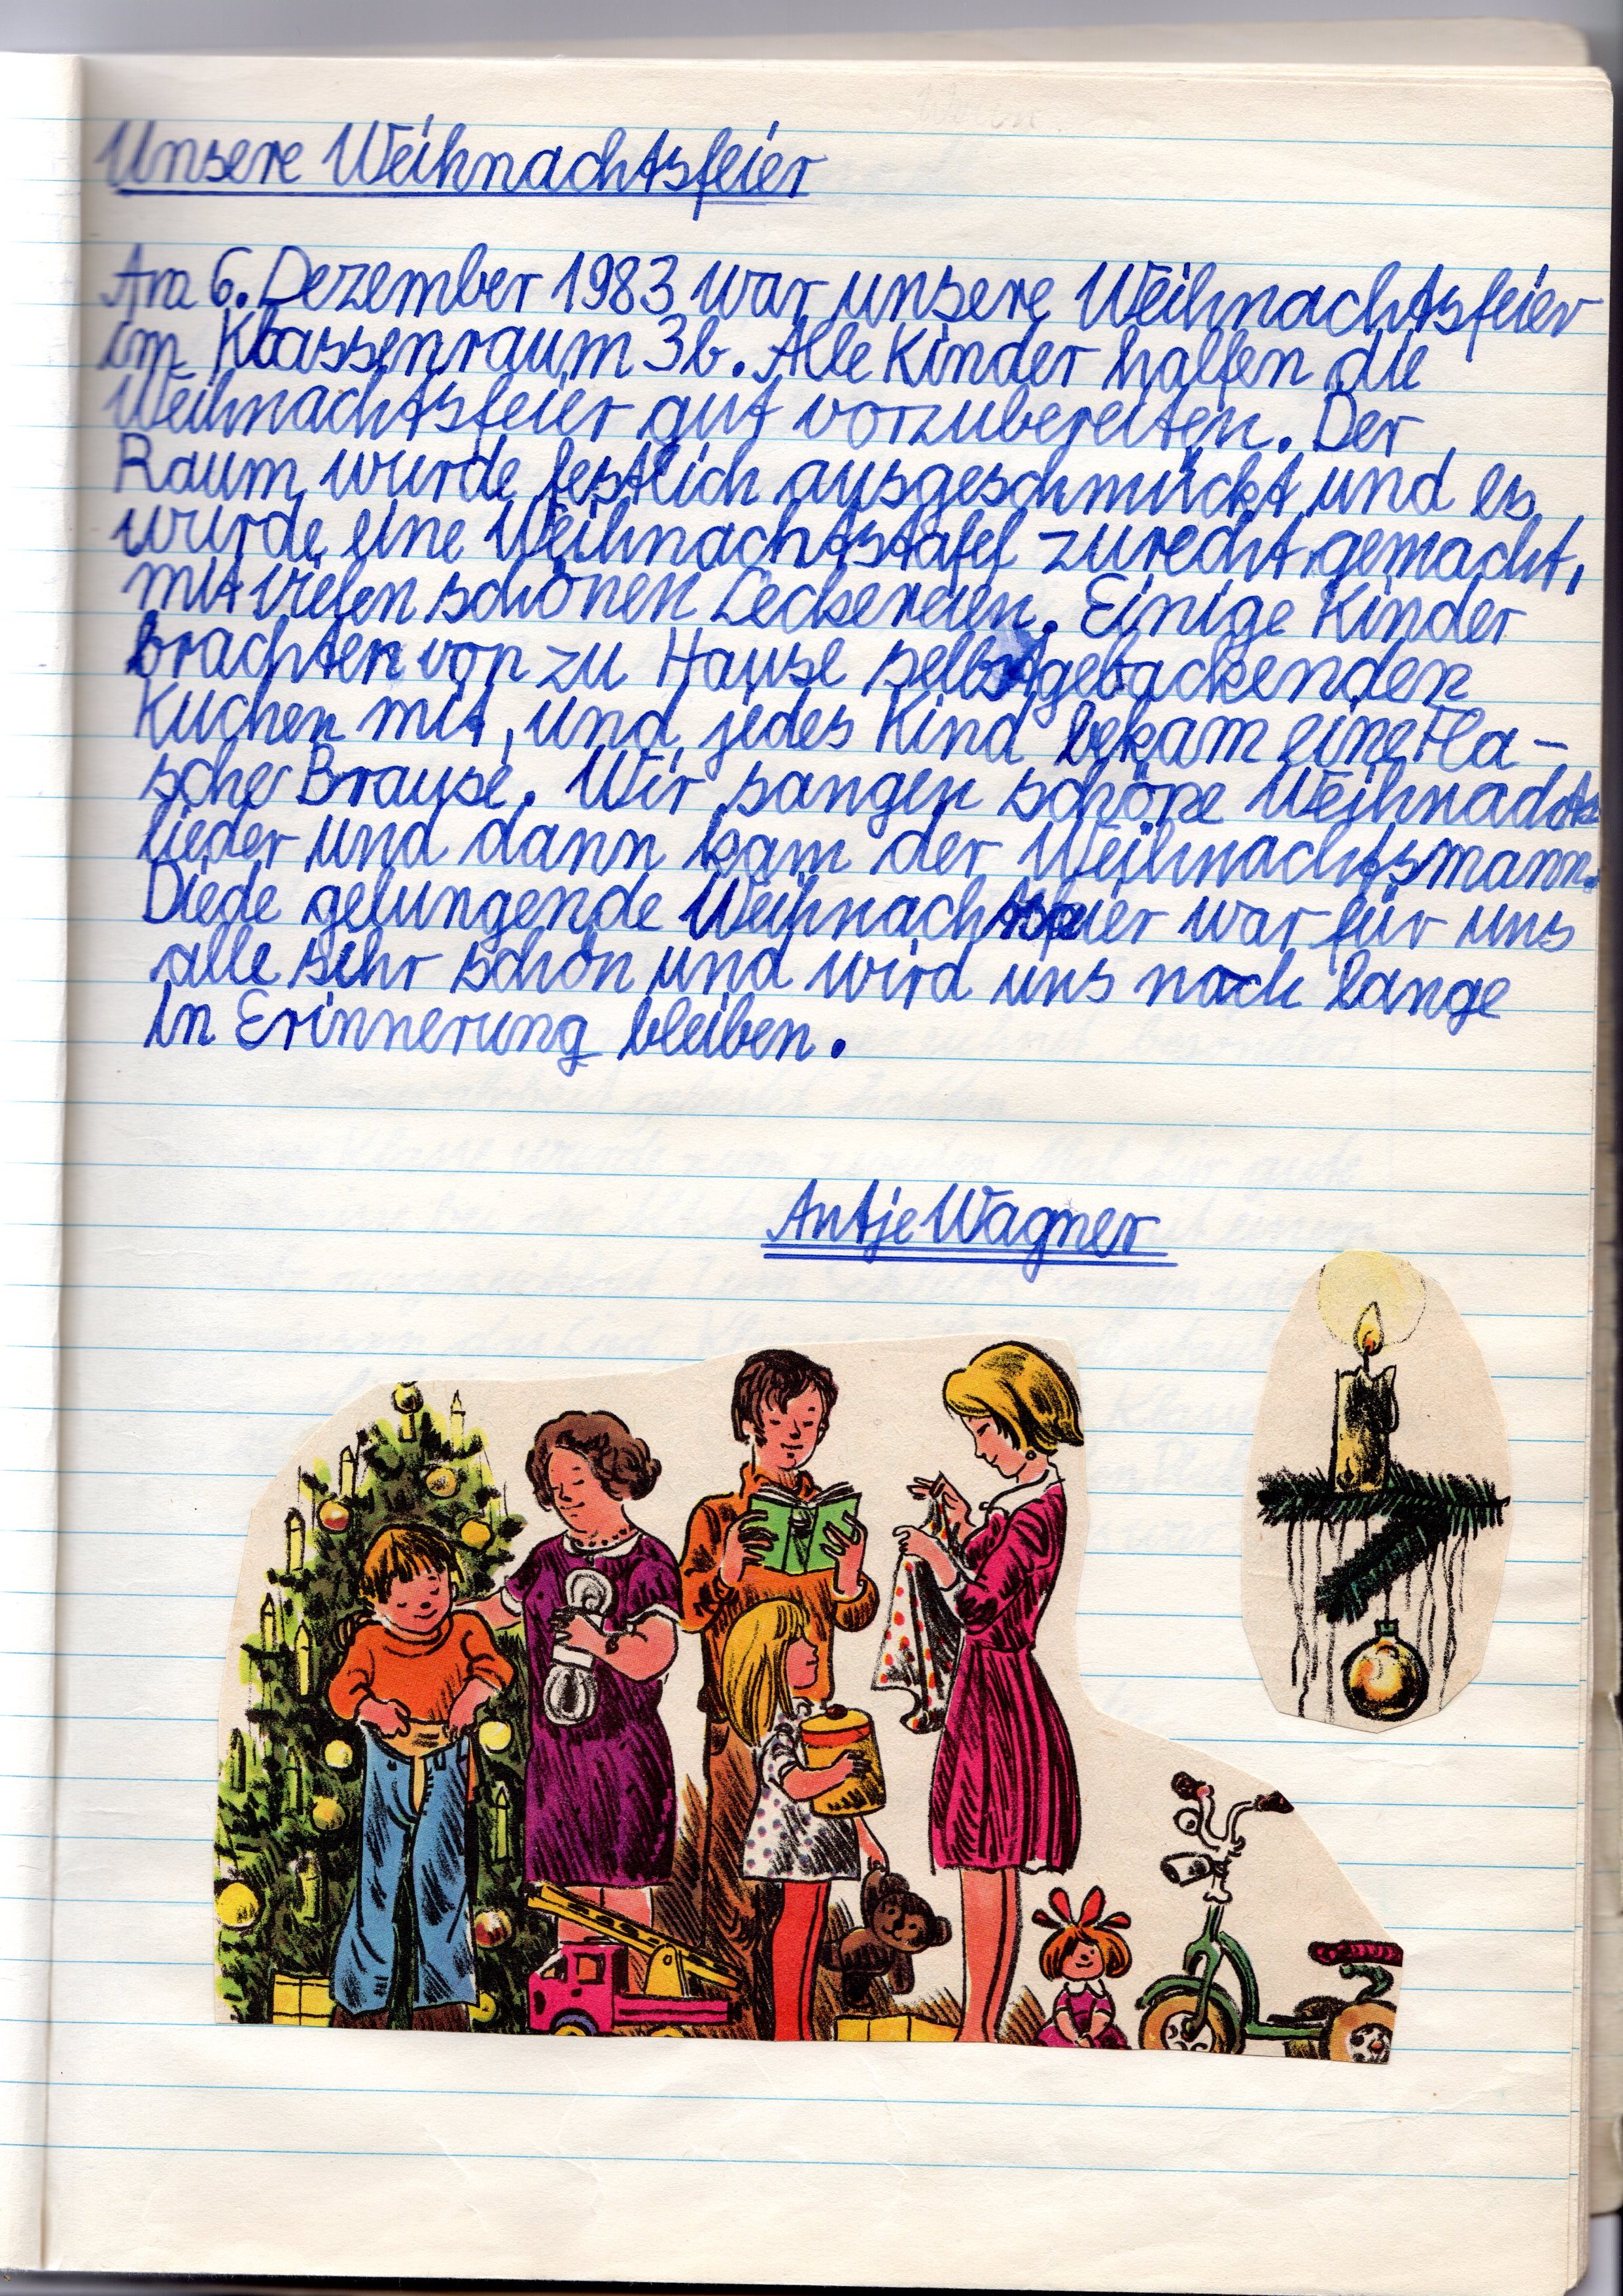 Unsere Weihnachtsfeier
Am 6. Dezember 1983 war unsere Weihnachtsfeier
im Klassenraum 3b. Alle Kinder halfen die
Weihnachtsfeier gut vorzubereiten. Der
Raum wurde festlich ausgeschmückt und es
wurde eine Weihnachtstafel zurecht gemacht,
mit vielen schönen Leckereien. Einige Kinder
brachten von zu Hause selbstgebackenden
Kuchen mit, und jedes Kind bekam eine Fla-
sche Brause. Wir sangen schöne Weihnachts
lieder und dann kam der Weihnachtsmann.
Diede gelungende Weihnachtsfeier war für uns
alle sehr schön und wird uns noch lange
in Erinnerung bleiben.
Antje Wagner